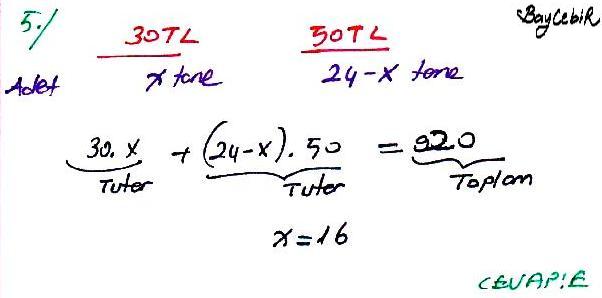 BayCebiR
5./ 30TL 50TL
Adet x tane 24-x tane
30.x + (24-x).50 = 920
Tutar Tutar Toplam
x=16
CEVAP:E